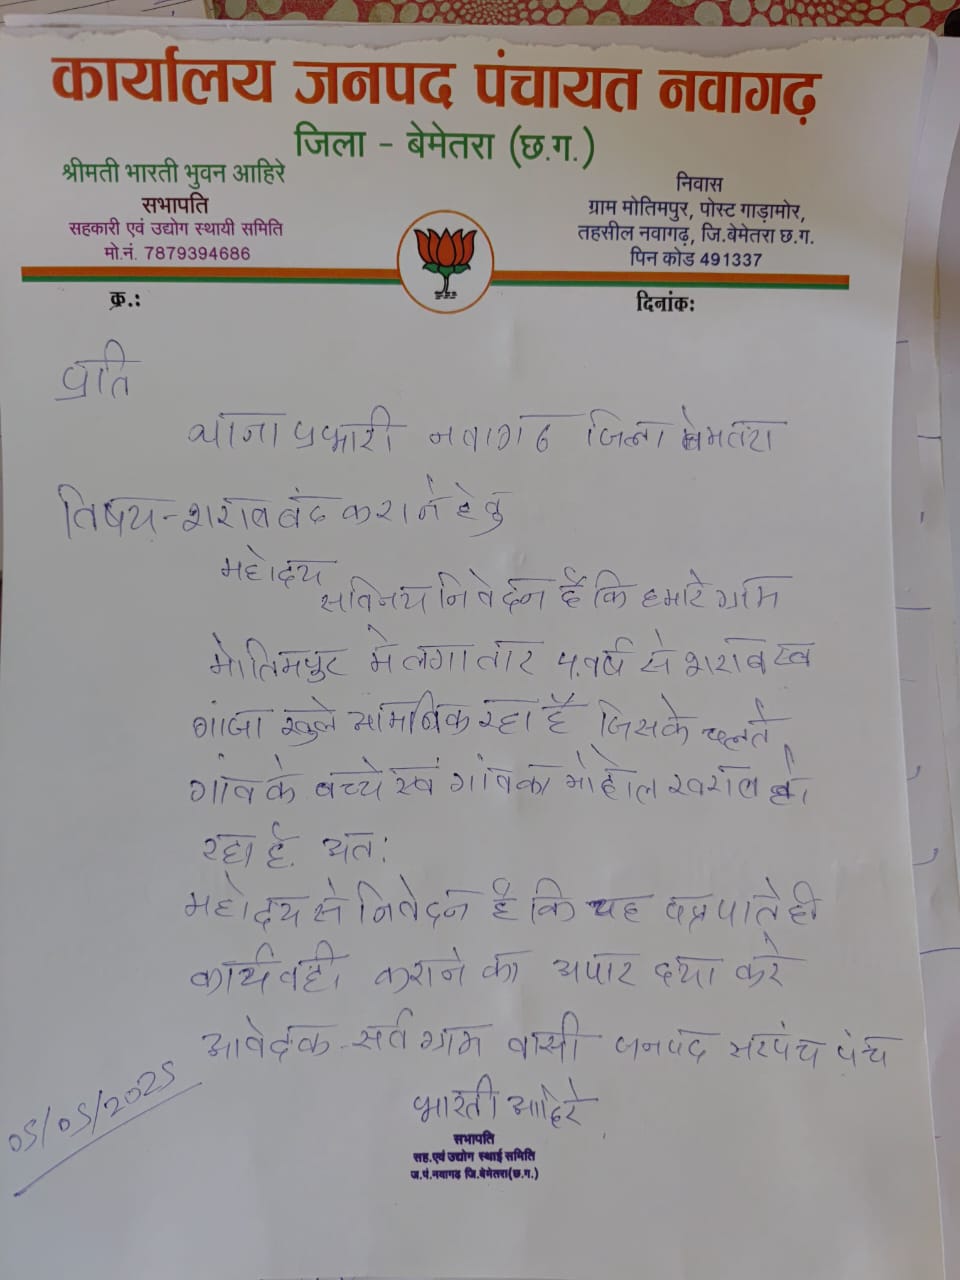 कार्यालय जनपद पंचायत नवागढ़
जिला - बेमेतरा (छ.ग.)
श्रीमती भारती भुवन आहिरे
सभापति
सहकारी एवं उद्योग स्थायी समिति
मो.नं. 7879394686
निवास
ग्राम मोतिमपुर, पोस्ट गाड़ामोर,
तहसील नवागढ़, जि.बेमेतरा छ.ग.
पिन कोड 491337
क्र.:
दिनांक:
प्रति
थाना प्रभारी नवागढ जिला बेमेतरा
विषय - शराब बंद कराने हेतु
महोदय
सविनय निवेदन है कि हमारे ग्राम
मोतिमपुर में लगातार ५ वर्ष से शराब एवं
गांजा खुले आम बिक रहा है जिसके चलते
गांव के बच्चे एवं गांव का माहोल खराब हो
रहा है. अत:
महोदय से निवेदन है कि यह पत्र पाते ही
कार्यवही कराने का अपार दया करे
आवेदक - सर्व ग्राम वासी जनपद सरपंच पंच
05/05/2025
भारती आहिरे
सभापति
सह.एवं उद्योग स्थाई समिति
ज.पं.नवागढ़ जि.बेमेतरा(छ.ग.)